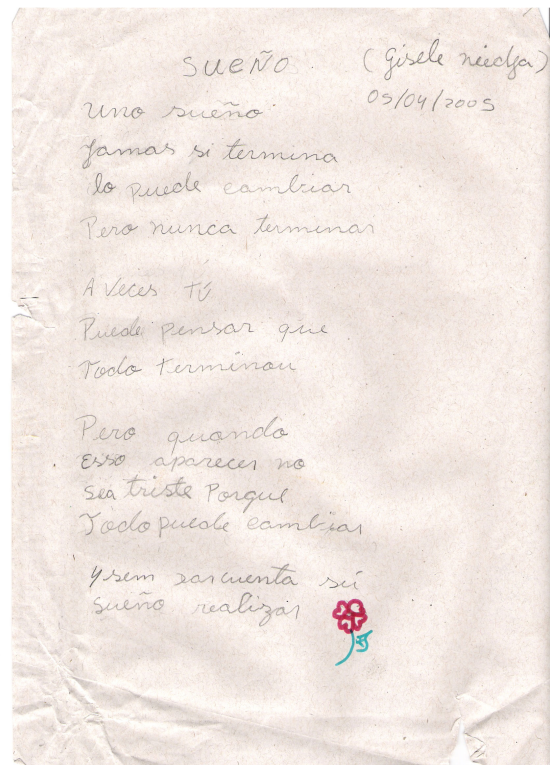 SUEÑO (Gisele
05/04/2005
Uno sueño
Jamas si termina
lo puede cambiar
Pero nunca terminar
A Veces TÚ
Puede pensar que
Todo terminou
Pero quando
Esso apareces no
sea triste Porque
Todo puede cambiar
y sem sarcuenta sú
sueño realizar